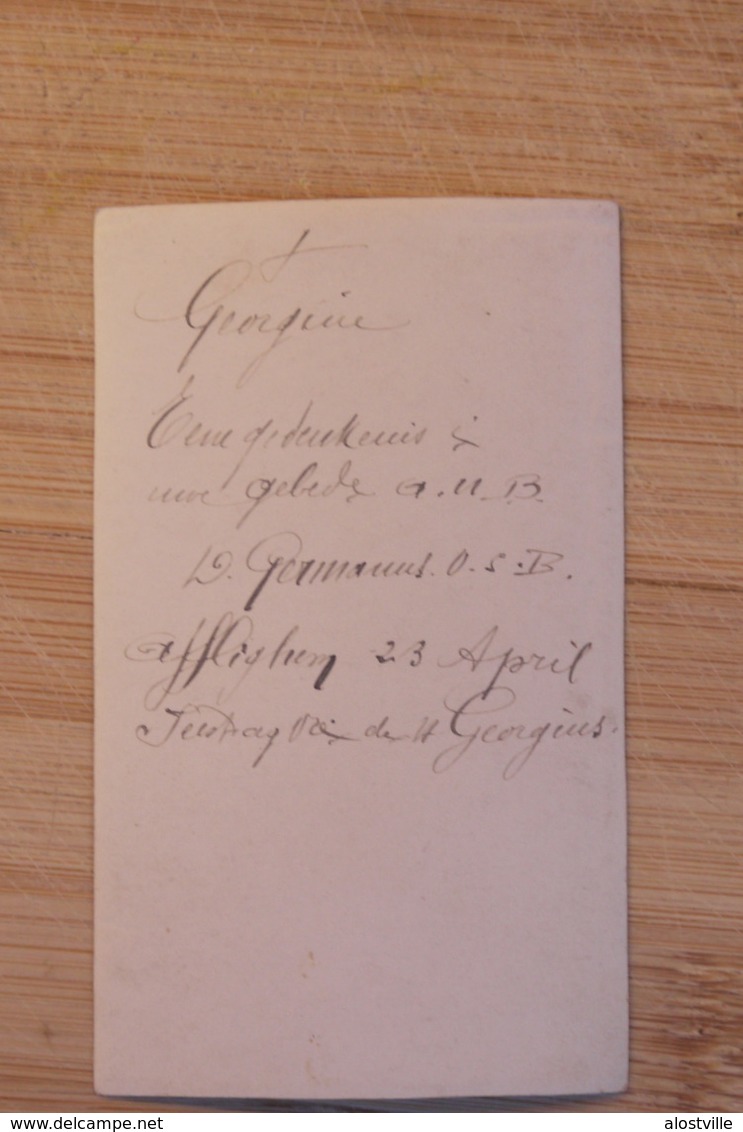 †
Georgine
Eene gedenkenis i
uwe gebede a.u.B.
D. Germanus. O.S.B.
Afflighem 23 April
Feestdag van de H Georgius.
delcampe.net
alostville